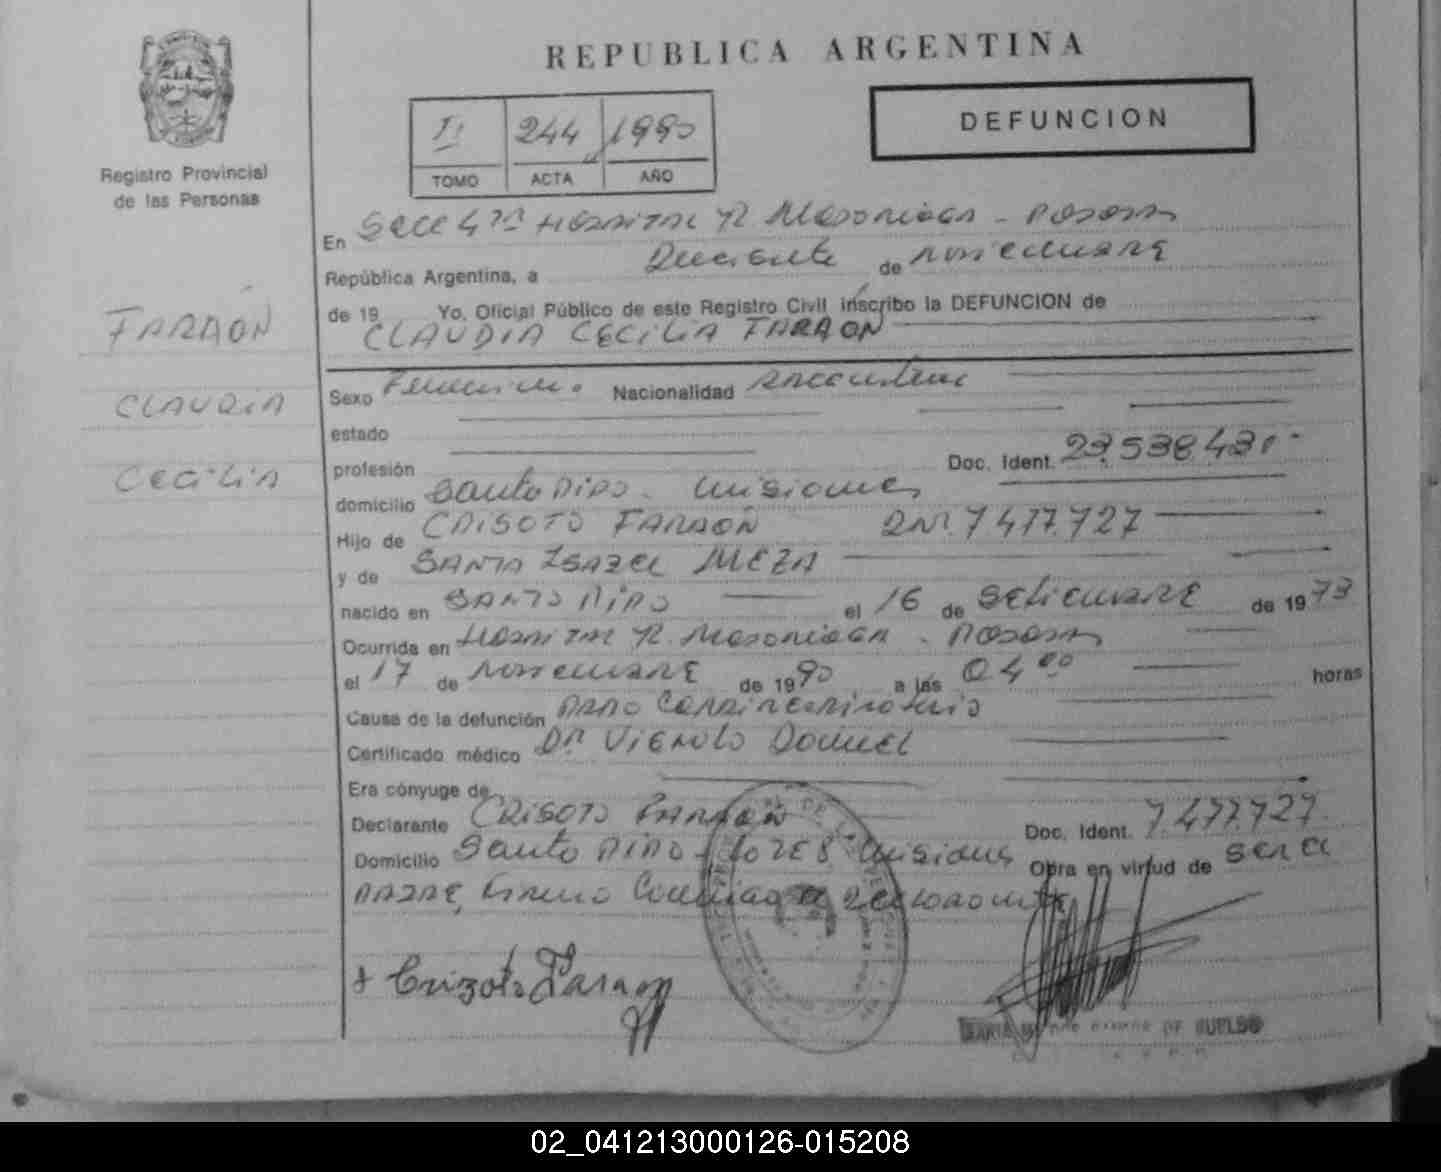 REPUBLICA ARGENTINA
DEFUNCION
II 244 1990
TOMO ACTA AÑO
Registro Provincial
de las Personas
En Secc 4ta Hospital R. Madariaga - Posadas
República Argentina, a Diecisiete de noviembre
de 19 Yo, Oficial Público de este Registro Civil inscribo la DEFUNCION de
CLAUDIA CECILIA FARAON
FARAÓN
CLAUDIA
CECILIA
Sexo Femenino. Nacionalidad Argentina
estado
profesión Doc. Ident. 23.538.431
domicilio Santo Pipo - Misiones
Hijo de CRISOTO FARAÓN DNI. 7.477.727
y de SANTA ISABEL MEZA
nacido en SANTO PIPO el 16 de Setiembre de 1973
Ocurrida en Hospital R. Madariaga - Posadas
el 17 de noviembre de 1990 a las 04 00 horas
Causa de la defunción Paro Cardiorespiratorio
Certificado médico Dr.
Era cónyuge de
Declarante CRISOTO FARAÓN Doc. Ident. 7.477.727
Domicilio Santo Pipo - Misiones Obra en virtud de ser el
padre,
Crizoto Faraon
02_041213000126-015208